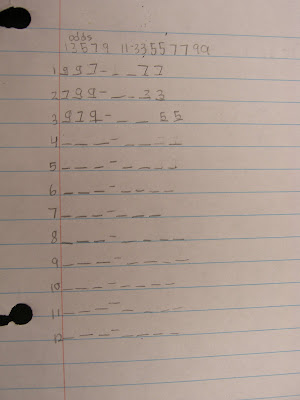 odds
13579 11-33557799
1 997-__77
2 799-__33
3 979-__55
4 ___-____
5 ___-____
6 ___-____
7 ___-___
8 ___-____
9 ___-____
10 ___-____
11 ___-____
12 ___-____